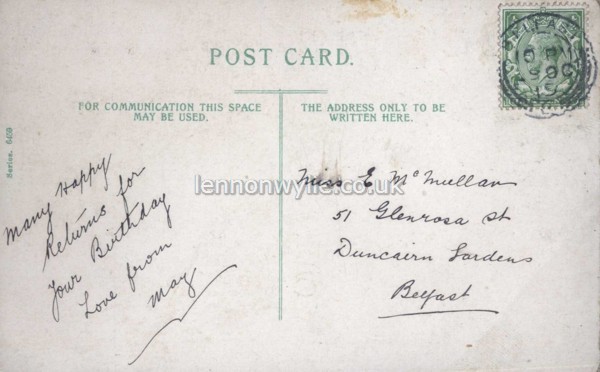 POST CARD.
FOR COMMUNICATION THIS SPACE
MAY BE USED.
THE ADDRESS ONLY TO BE
WRITTEN HERE.
Series. 6459
Many Happy
Returns for
Your Birthday
Love from
May
Miss E McMullan
51 Glenrosa St
Duncairn Gardens
Belfast
lennonwylie.co.uk
BELFAST